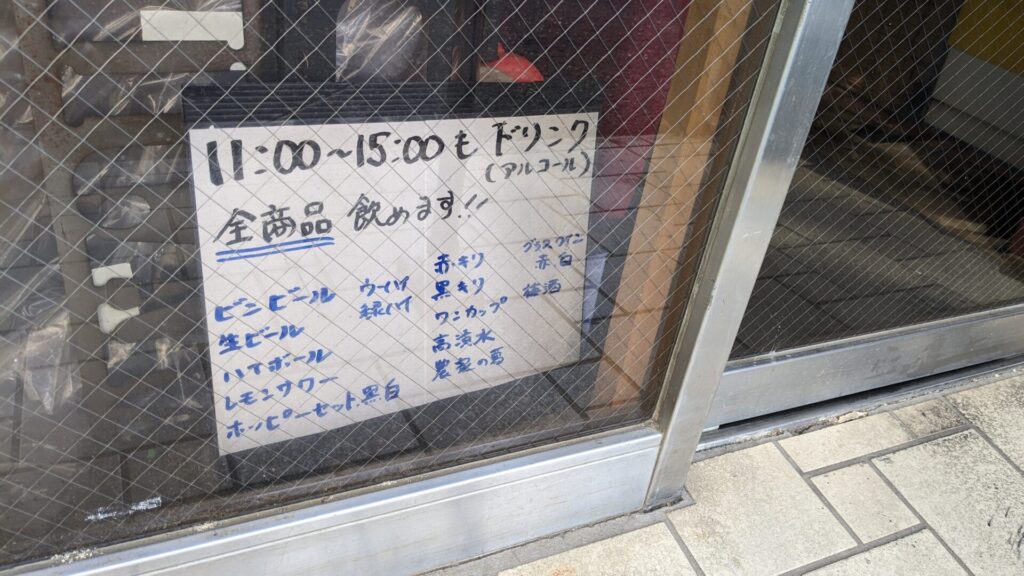 11:00~15:00も ドリンク
(アルコール)
全商品 飲めます!!
ビンビール
生ビール
ハイボール
レモンサワー
ホッピーセット黒白
ウーハイ
緑ハイ
赤キリ
黒キリ
ワンカップ
高清水
農家の夢
グラスワイン
赤白
梅酒